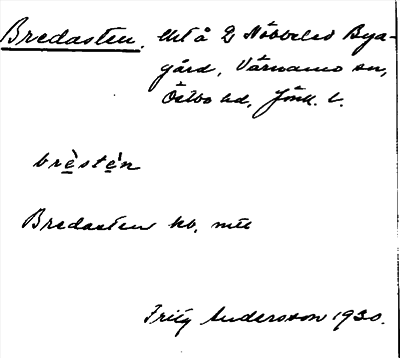 Bredasten, Uet å 2 Nöbbeled Bya-
gård, Värnamo sn,
Östbo hd, Jönk. l.
brèstèn
Bredasten kb, mtt
Fritz Andersson 1930.